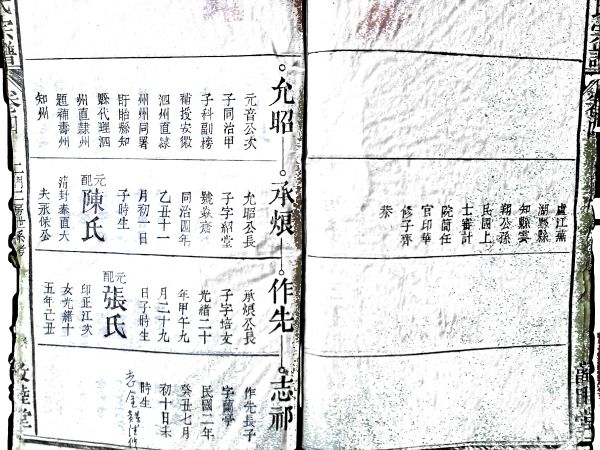 盧江蕪
湖縣縣
知縣雲
翔公孫
民國上
士審計
院簡任
官印華
修子齊
恭
允昭
元音公次
子同治甲
子科副榜
補授安徽
泗州直隸
州州同署
盱眙縣知
縣代理泗
州直隸州
題補壽州
知州
承烺
允昭公長
子字紹堂
同治四年
乙丑十一
月初一日
子時生
元配
陳氏
清封奉直大
夫永保公
作先
承烺公長
子字培女
光緒二十
年甲午九
月二十九
日子時生
元配
張氏
印正江次
女光緒十
五年己丑
志祁
作先長子
字蘭亭
民國二年
癸丑七月
初十日未
時生
氏宗譜
敦睦堂